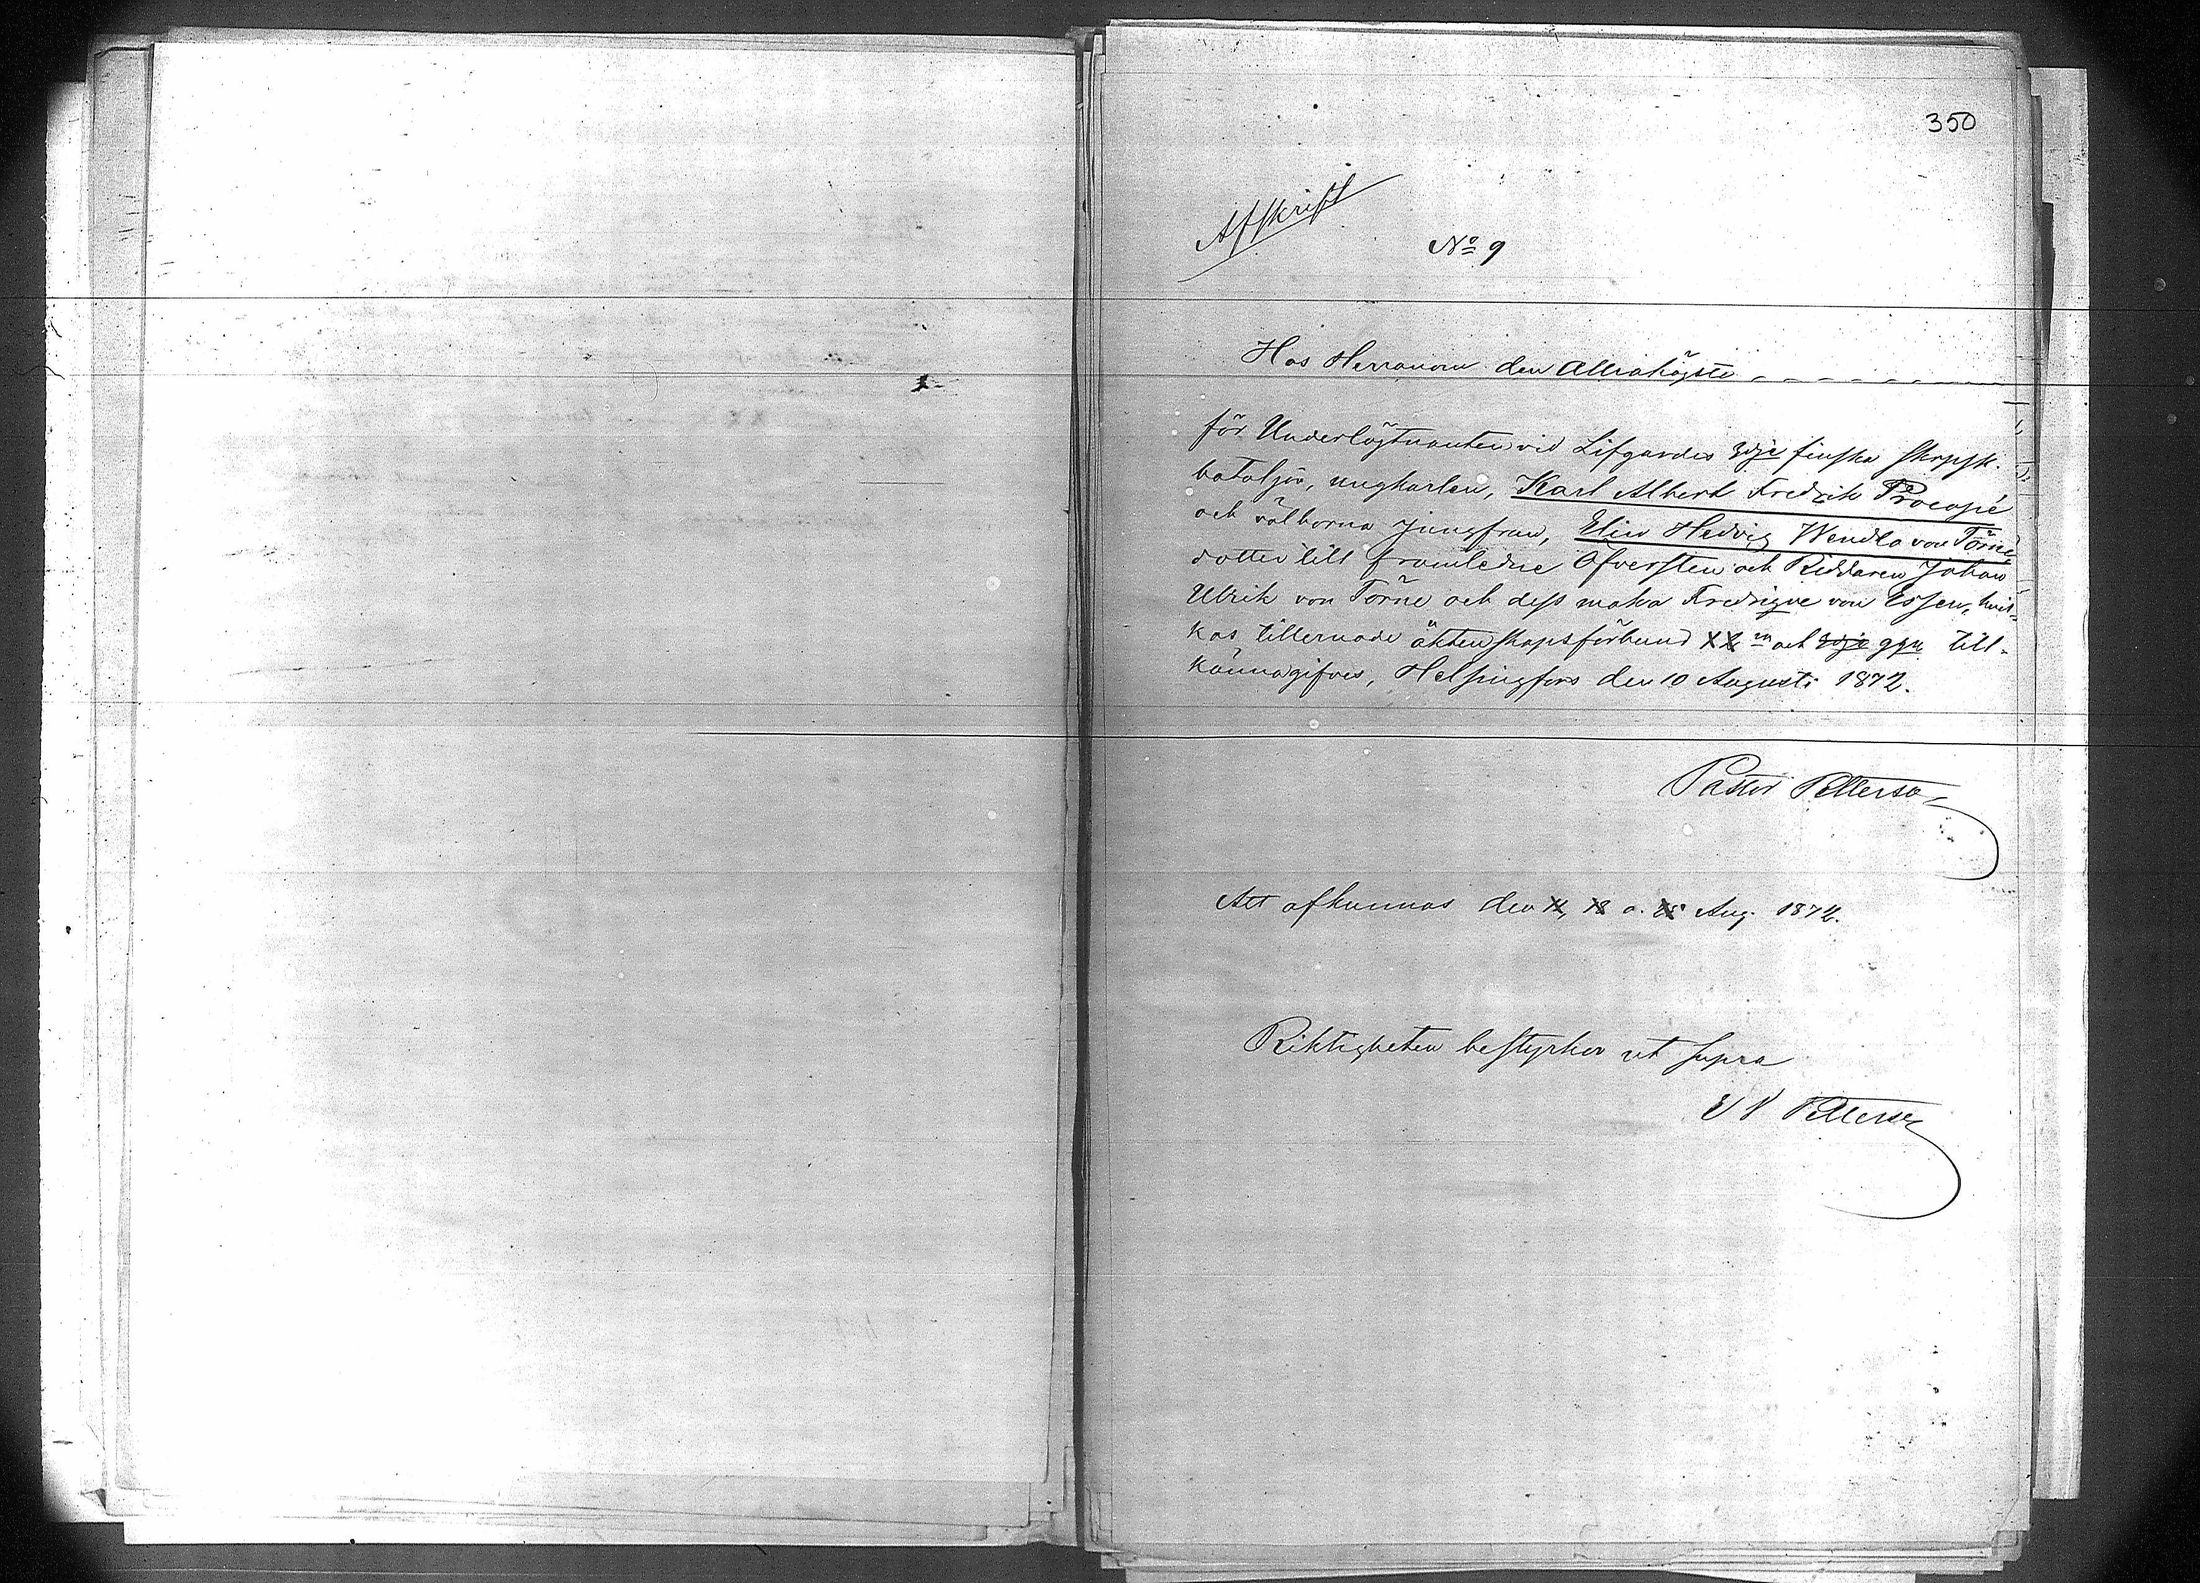 350
Afskrift
No 9
Hos Herranom den Allrahögste
för Underlöjtnanten vid Lifgardes 3dje finska Skrpsk.
bataljon, ungkarlen, Karl Albert Fredrik Procopé
och välborna jungfrun, Elin Hedvig Wendla von Törne,
dotter till framledne Öfversten och Riddaren Johan
Ulrik von Törne och dess maka Fredrique von Essen, hvil-
kas tillernade äktenskapsförbund och 3dje ggn till-
kännagifves, Helsingfors den 10 Augusti 1872.
Pastor Petterson
Att afkunnas den 11, 18 o. 25 Aug. 1872.
Riktigheten bestyrker ut supra
Petterson